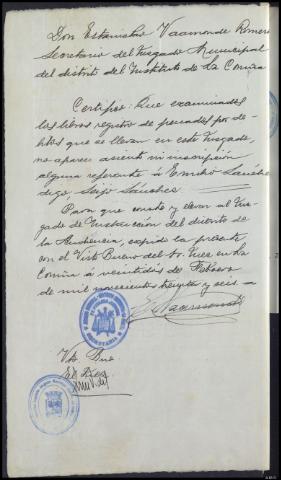 Don Estanislao Vaamonde Romero
Secretario del Juzgado Municipal
del distrito del Instituto de La Coruña
Certifico: Que examinados
los libros registro de penados por de-
litos que se llevan en este Juzgado,
no aparece asiento ni inscripción
alguna referente a Emilio Sánchez
digo, Seijo Sánchez
Para que conste y llevar al Juz-
gado de Instrucción del distrito de
la Audiencia, expido la presente
con el Visto Bueno del Sr. Juez en La
Coruña a veintidos de Febrero
de mil novecientos treinta y seis
E. Vaamonde
Vto. Bno.
El Juez